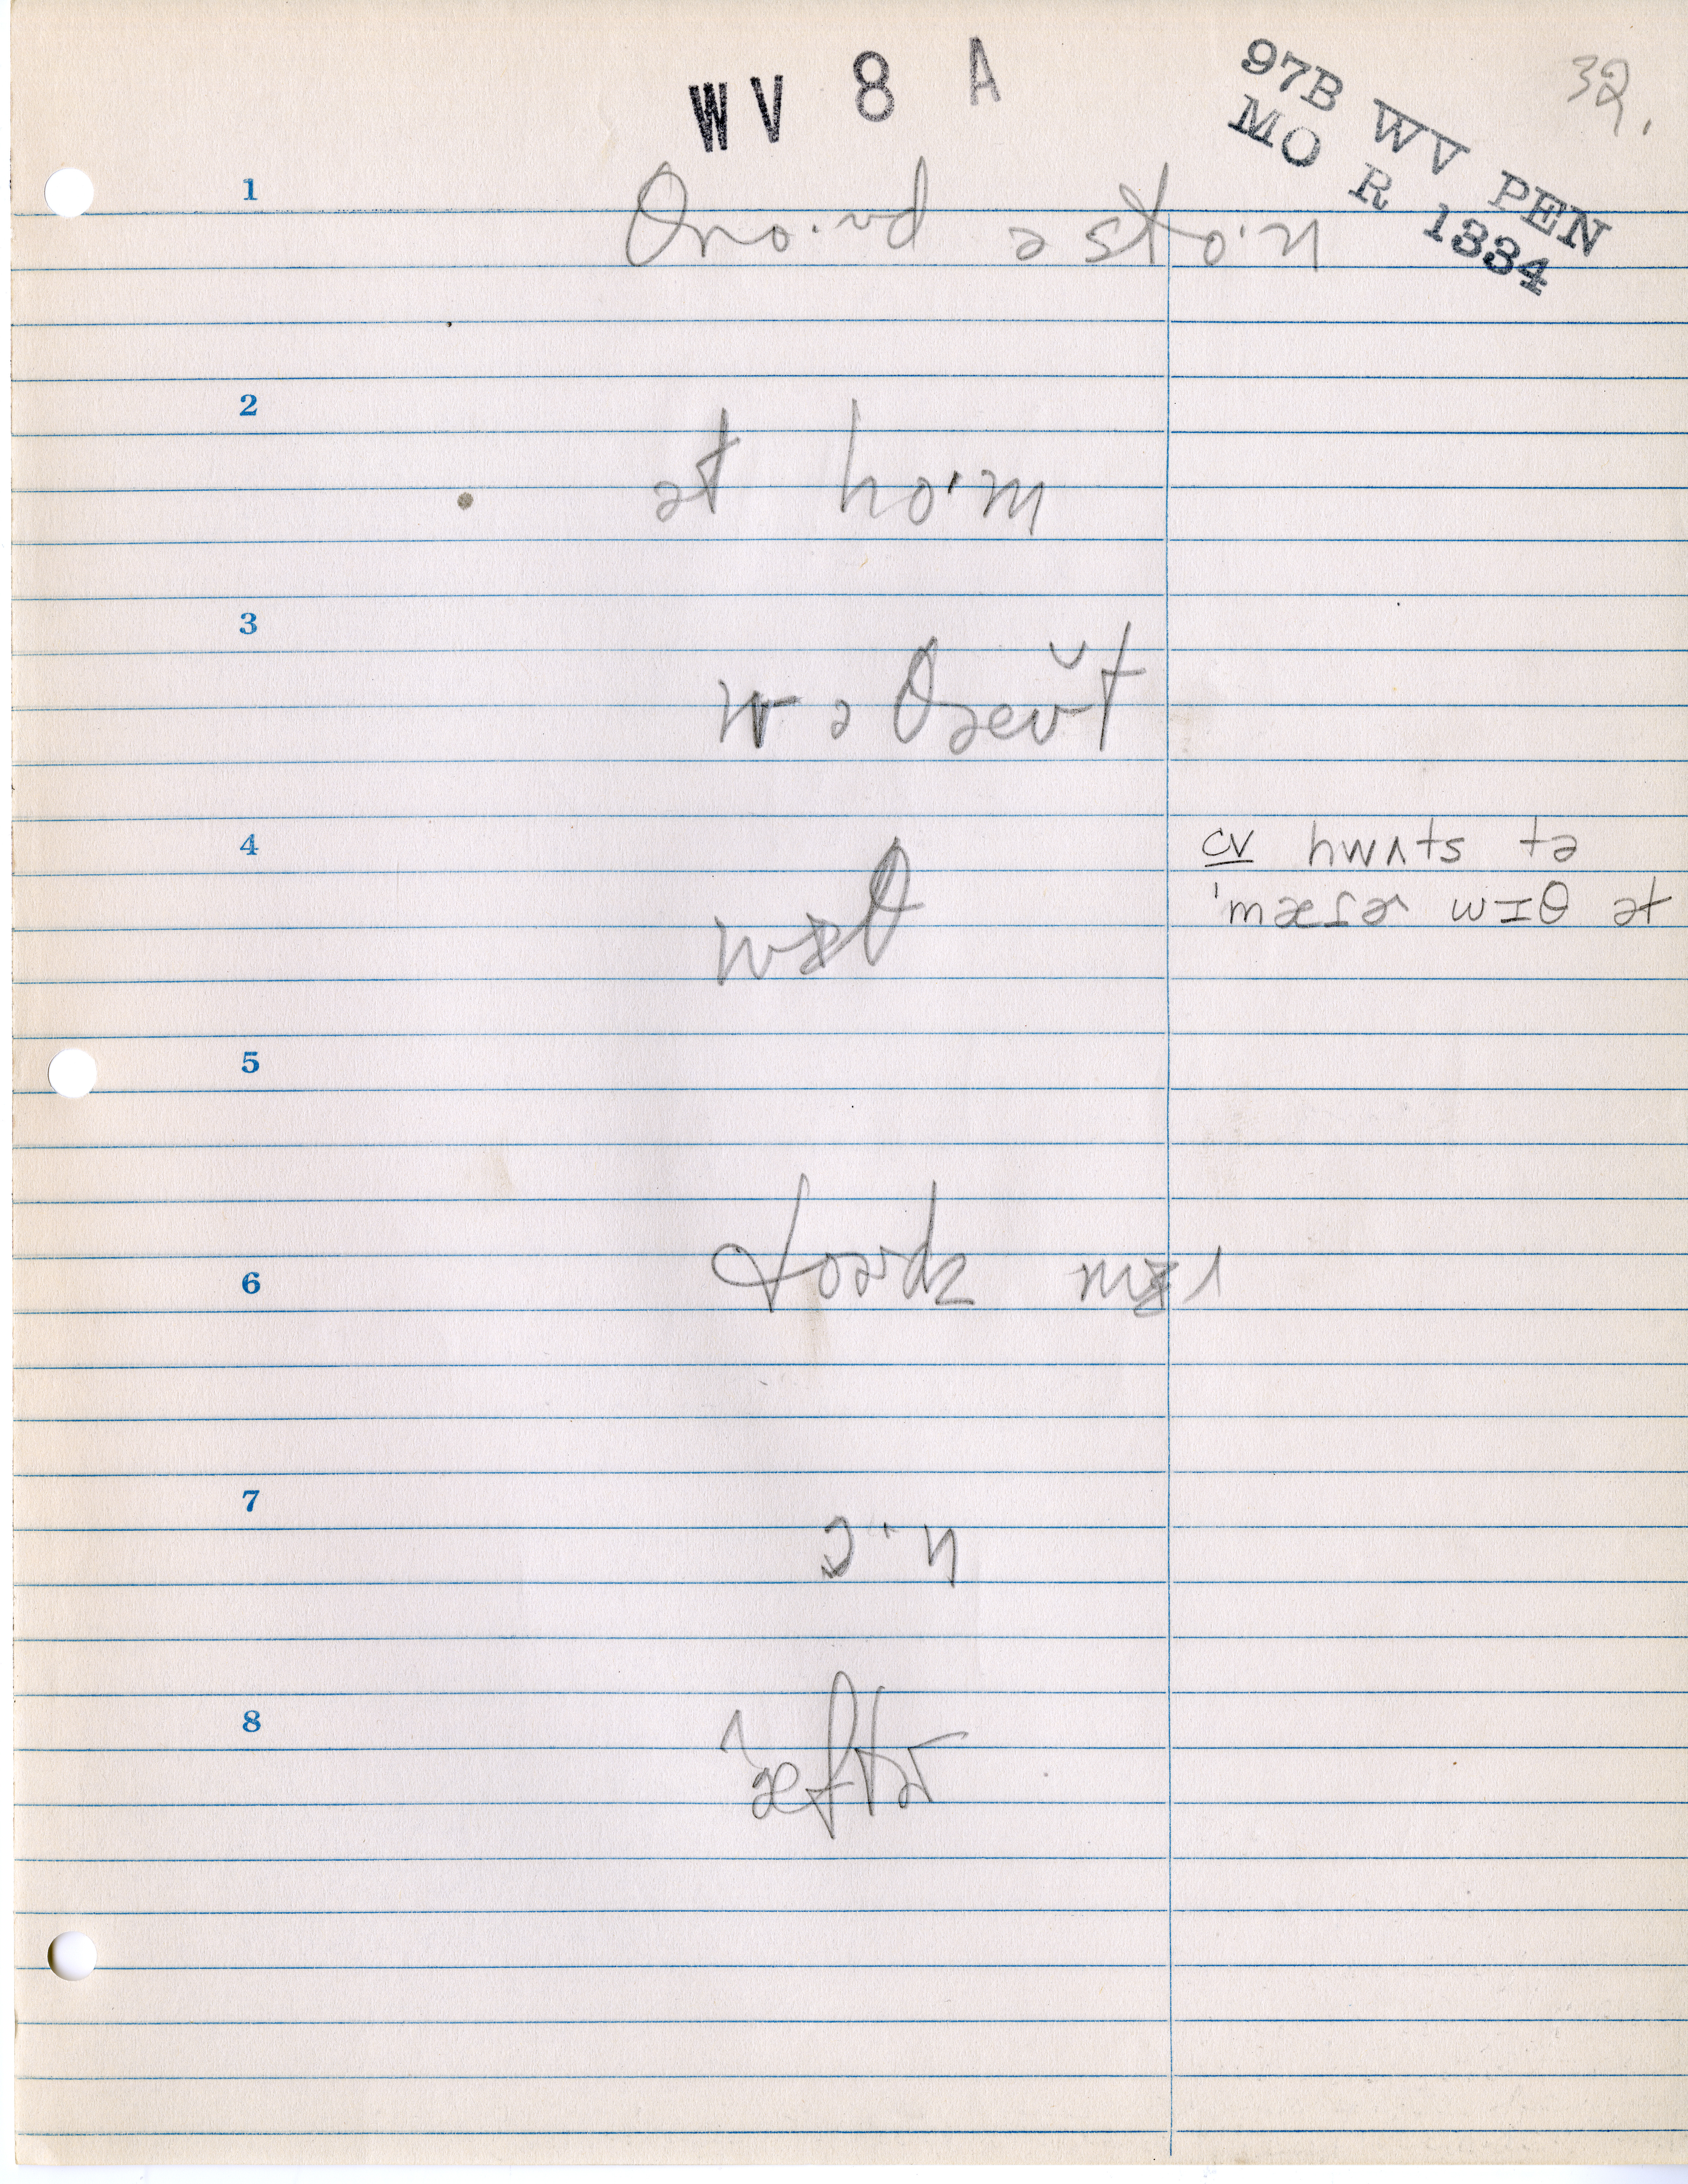 WV 8 A
97B WV PEN
MO R 1334
32.
1
θro·ᵊd ə sto·n
2
ət ho·m
3
wəθæʊ̆t
4
wɪθ
cv hwʌts tə
ˈmæɾɚ wɪθ ət
5
6
toɚdz mɪ
7
ɔ·n
8
æ^ftɚ